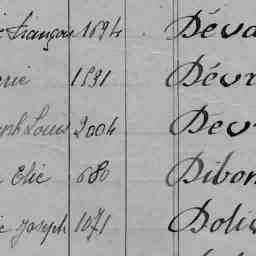 François 1694 Déva
rie 1531 Dévr
ph Louis 2004 Dev
Elie 680 Dibon
Joseph 1071 Doliv